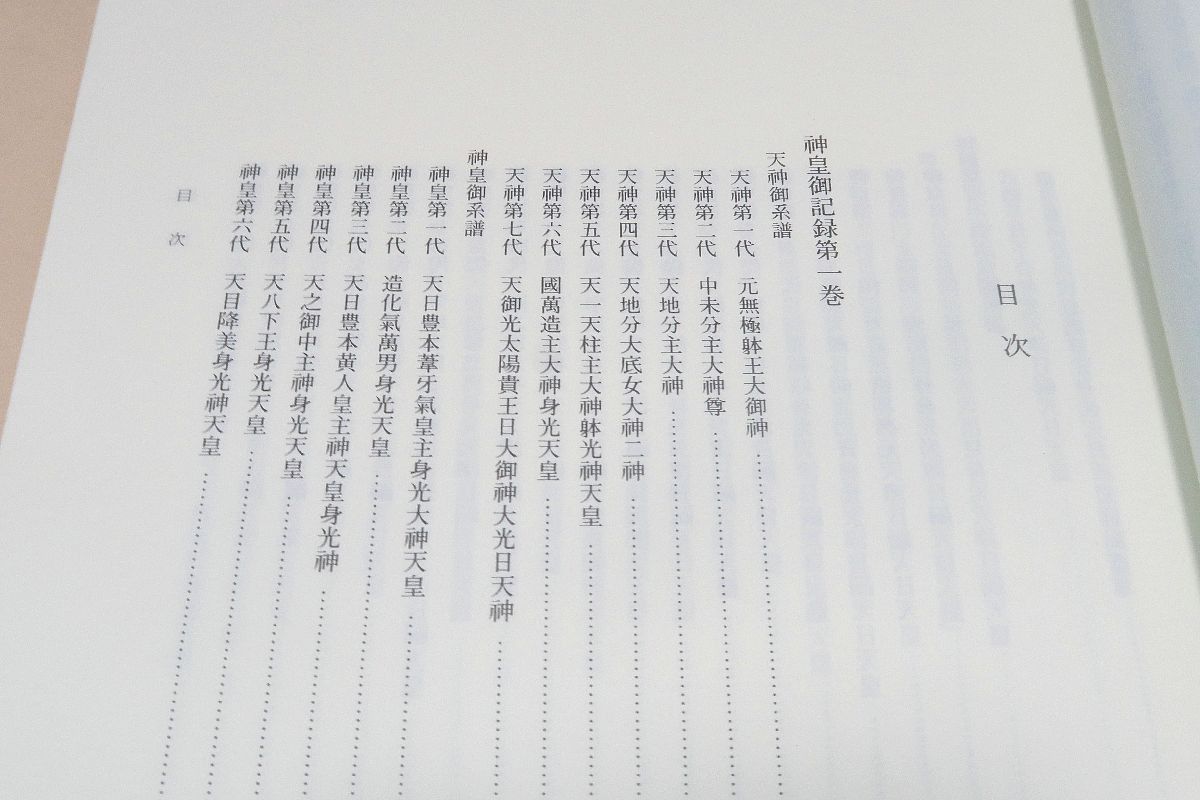 目次
神皇御記録第一巻
天神御系譜
天神第一代 元無極躰王大御神
天神第二代 中未分主大神尊
天神第三代 天地分主大神
天神第四代 天地分大底女大神二神
天神第五代 天一天柱主大神躰光神天皇
天神第六代 國萬造主大神身光天皇
天神第七代 天御光太陽貴王日大御神大光日天神
神皇御系譜
神皇第一代 天日豊本葦牙氣皇主身光大神天皇
神皇第二代 造化氣萬男身光天皇
神皇第三代 天日豊本黄人皇主神天皇身光神
神皇第四代 天之御中主神身光天皇
神皇第五代 天八下王身光天皇
神皇第六代 天目降美身光神天皇
目次